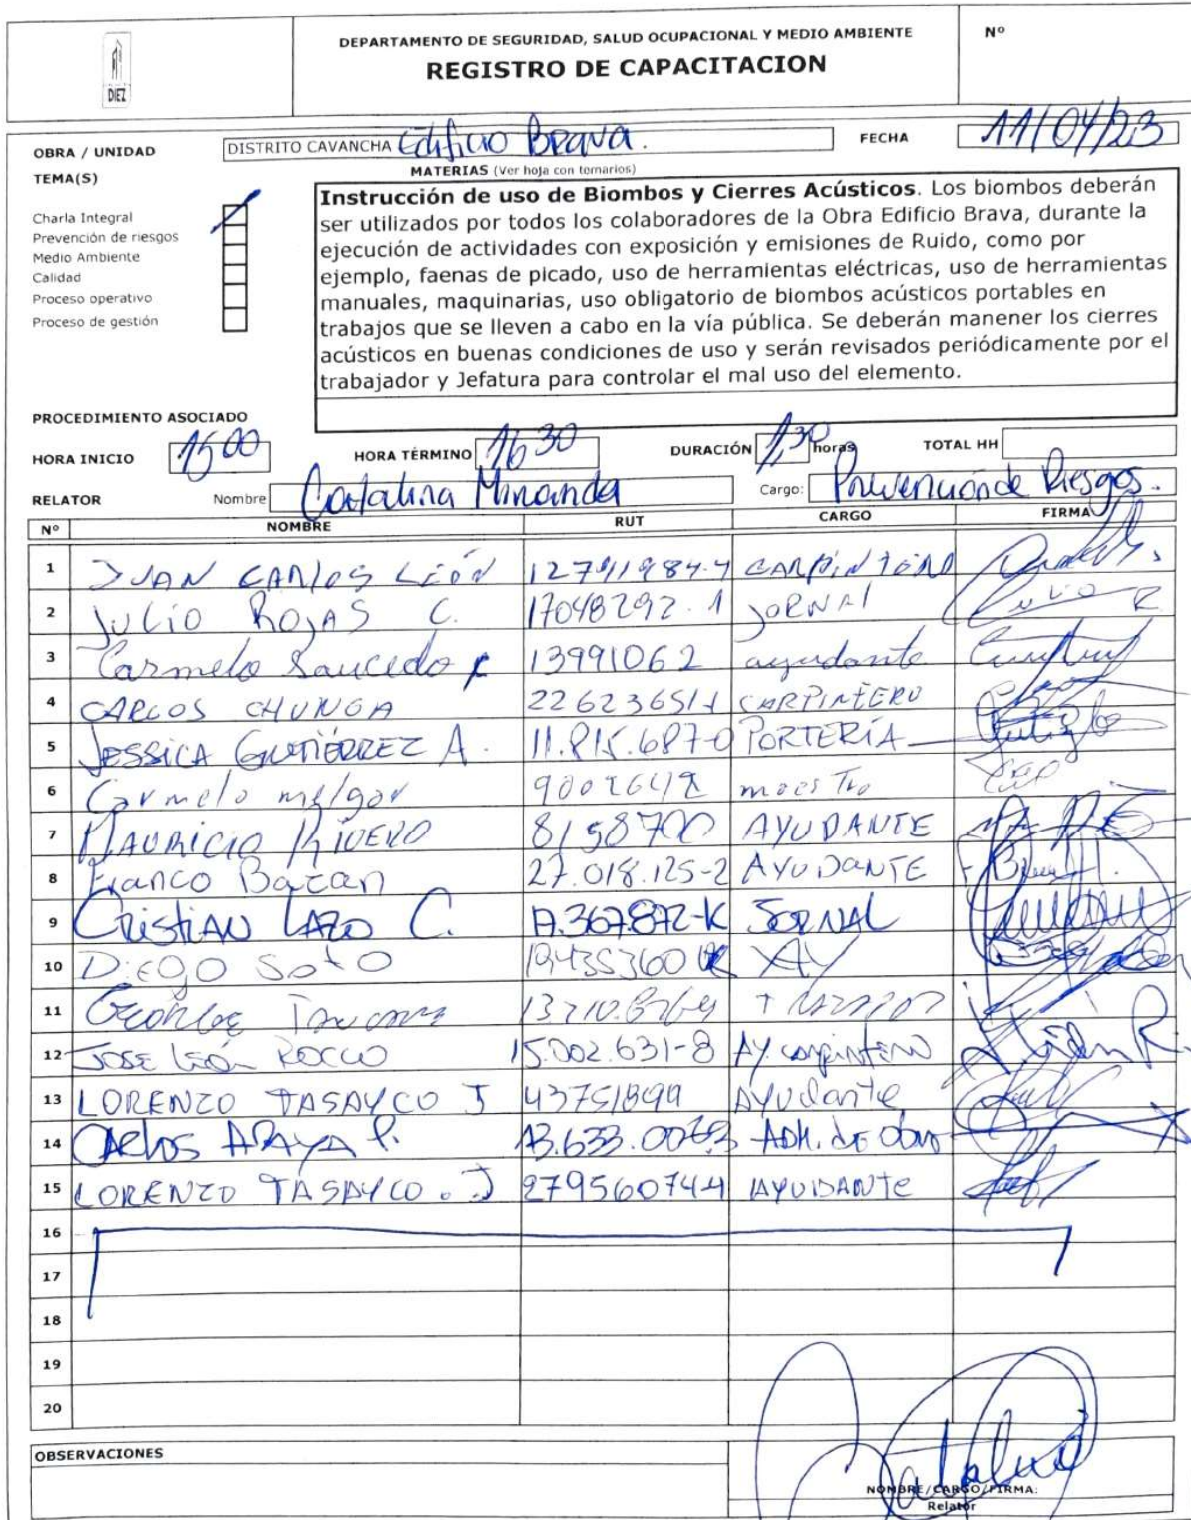 DIEZ
DEPARTAMENTO DE SEGURIDAD, SALUD OCUPACIONAL Y MEDIO AMBIENTE
REGISTRO DE CAPACITACION
Nº
OBRA / UNIDAD DISTRITO CAVANCHA Edificio Brava. FECHA 11/04/23
TEMA(S) MATERIAS (Ver hoja con temarios)
Charla Integral
Prevención de riesgos
Medio Ambiente
Calidad
Proceso operativo
Proceso de gestión
Instrucción de uso de Biombos y Cierres Acústicos. Los biombos deberán
ser utilizados por todos los colaboradores de la Obra Edificio Brava, durante la
ejecución de actividades con exposición y emisiones de Ruido, como por
ejemplo, faenas de picado, uso de herramientas eléctricas, uso de herramientas
manuales, maquinarias, uso obligatorio de biombos acústicos portables en
trabajos que se lleven a cabo en la vía pública. Se deberán manener los cierres
acústicos en buenas condiciones de uso y serán revisados periódicamente por el
trabajador y Jefatura para controlar el mal uso del elemento.
PROCEDIMIENTO ASOCIADO
HORA INICIO 15 00 HORA TÉRMINO 16 30 DURACIÓN 1,30 horas TOTAL HH
RELATOR Nombre Catalina Miranda Cargo: Prevención de Riesgos.
Nº NOMBRE RUT CARGO FIRMA
1 JUAN CARLOS LEÓN CARPINTERO
2 JULIO ROJAS C. 17048292-1 JORNAL
3 Carmelo Saucedo 13991062 ayudante
4 CARLOS CHUNGA CARPINTERO
5 JESSICA GUTIÉRREZ A. 11.815.687-0 PORTERÍA
6 Carmelo melgar maestro
7 MAURICIO RIVERO 8158700 AYUDANTE
8 Franco Bazan 27.018.125-2 AYUDANTE
9 CRISTIAN LAZO C. 17.367.872-K JORNAL
10 DIEGO Soto AY
11
12 JOSE León ROCCO 15.002.631-8 AY carpintero
13 LORENZO TASAYCO J 43751899 AYUdante
14 CARLOS ARAYA P. ADM. de obra
15 LORENZO TASAYCO . J 27956074-4 AYUDANTE
16
17
18
19
20
OBSERVACIONES
NOMBRE/CARGO/FIRMA:
Relator